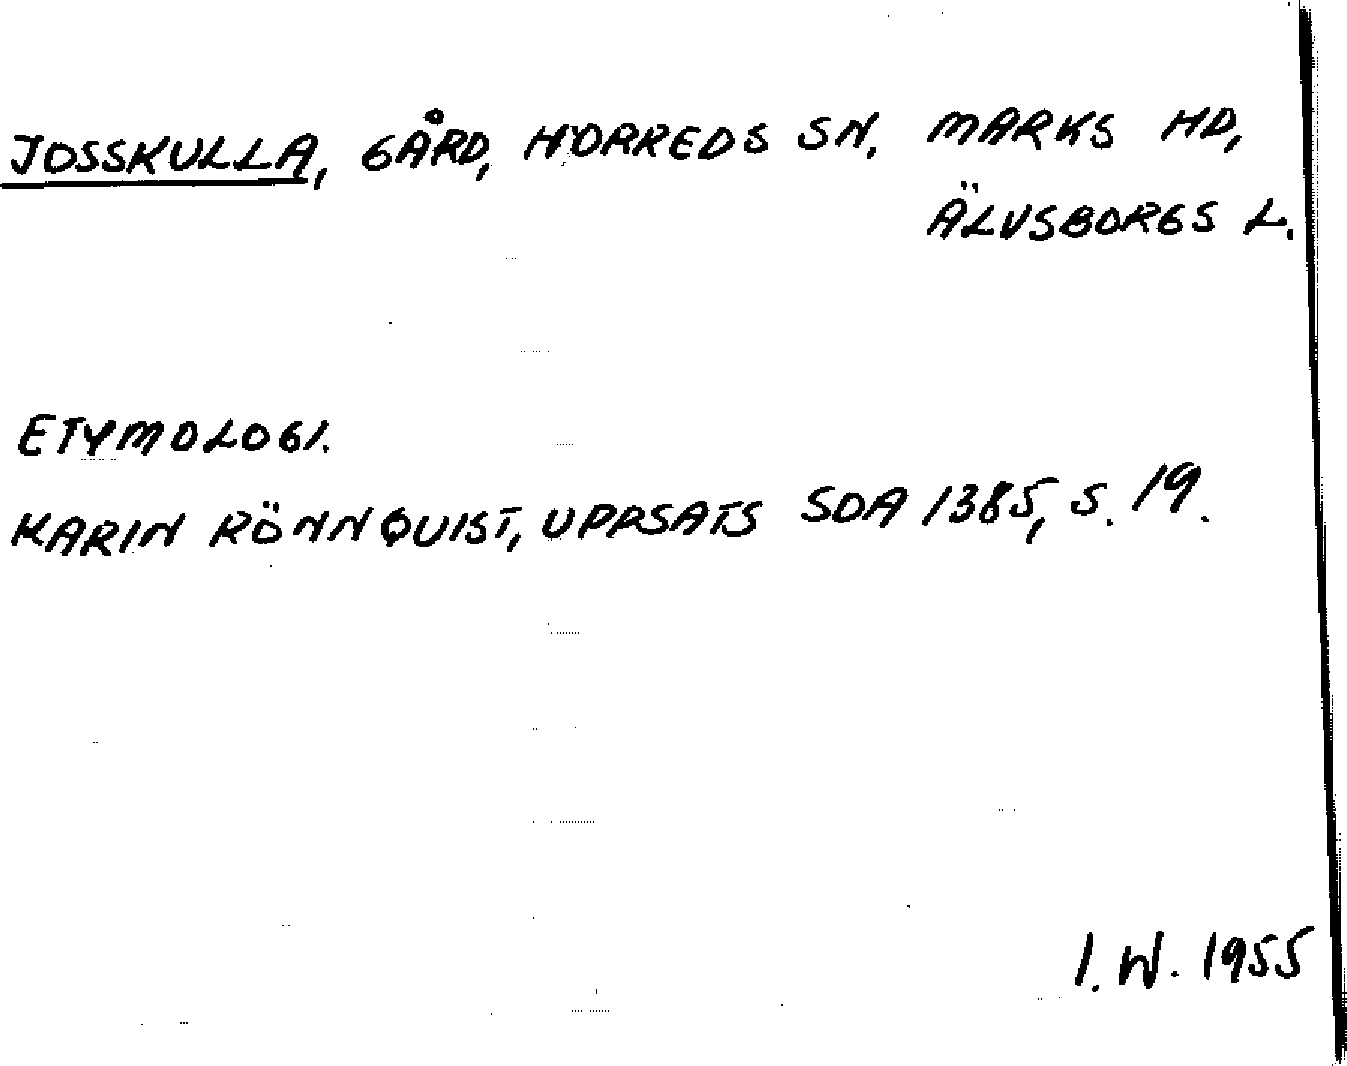 JOSSKULLA, GÅRD, HORREDS SN, MARKS HD,
ÄLVSBORGS L.
ETYMOLOGI.
KARIN RÖNNQUIST, UPPSATS SOA 1385, S. 19.
I. W. 1955